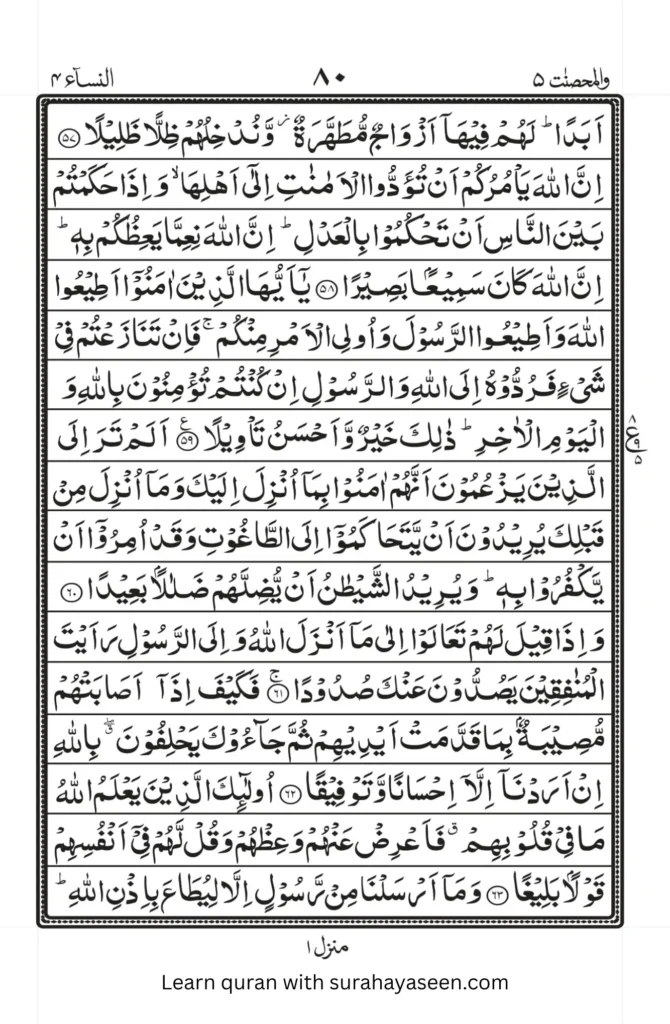 والمحصنت ۵ ۸۰ النسآء ۴
اَبَدًا ؕ لَهُمْ فِيْهَاۤ اَزْوَاجٌ مُّطَهَّرَةٌ ؗ وَّنُدْخِلُهُمْ ظِلًّا ظَلِيْلًا ۝۵۷
اِنَّ اللّٰهَ يَاْمُرُكُمْ اَنْ تُؤَدُّوا الْاَمٰنٰتِ اِلٰۤى اَهْلِهَا ۙ وَاِذَا حَكَمْتُمْ
بَيْنَ النَّاسِ اَنْ تَحْكُمُوْا بِالْعَدْلِ ؕ اِنَّ اللّٰهَ نِعِمَّا يَعِظُكُمْ بِهٖ ؕ
اِنَّ اللّٰهَ كَانَ سَمِيْعًۢا بَصِيْرًا ۝۵۸ يٰۤاَيُّهَا الَّذِيْنَ اٰمَنُوْۤا اَطِيْعُوا
اللّٰهَ وَاَطِيْعُوا الرَّسُوْلَ وَاُولِى الْاَمْرِ مِنْكُمْ ۚ فَاِنْ تَنَازَعْتُمْ فِىْ
شَىْءٍ فَرُدُّوْهُ اِلَى اللّٰهِ وَالرَّسُوْلِ اِنْ كُنْتُمْ تُؤْمِنُوْنَ بِاللّٰهِ وَ
الْيَوْمِ الْاٰخِرِ ؕ ذٰلِكَ خَيْرٌ وَّاَحْسَنُ تَاْوِيْلًا ۝۵۹ اَلَمْ تَرَ اِلَى
الَّذِيْنَ يَزْعُمُوْنَ اَنَّهُمْ اٰمَنُوْا بِمَاۤ اُنْزِلَ اِلَيْكَ وَمَاۤ اُنْزِلَ مِنْ
قَبْلِكَ يُرِيْدُوْنَ اَنْ يَّتَحَاكَمُوْۤا اِلَى الطَّاغُوْتِ وَقَدْ اُمِرُوْۤا اَنْ
يَّكْفُرُوْا بِهٖ ؕ وَيُرِيْدُ الشَّيْطٰنُ اَنْ يُّضِلَّهُمْ ضَلٰلًۢا بَعِيْدًا ۝۶۰
وَاِذَا قِيْلَ لَهُمْ تَعَالَوْا اِلٰى مَاۤ اَنْزَلَ اللّٰهُ وَاِلَى الرَّسُوْلِ رَاَيْتَ
الْمُنٰفِقِيْنَ يَصُدُّوْنَ عَنْكَ صُدُوْدًا ۚ۝۶۱ فَكَيْفَ اِذَاۤ اَصَابَتْهُمْ
مُّصِيْبَةٌۢ بِمَا قَدَّمَتْ اَيْدِيْهِمْ ثُمَّ جَآءُوْكَ يَحْلِفُوْنَ ۖۗ بِاللّٰهِ
اِنْ اَرَدْنَاۤ اِلَّاۤ اِحْسَانًا وَّتَوْفِيْقًا ۝۶۲ اُولٰٓئِكَ الَّذِيْنَ يَعْلَمُ اللّٰهُ
مَا فِىْ قُلُوْبِهِمْ ۗ فَاَعْرِضْ عَنْهُمْ وَعِظْهُمْ وَقُلْ لَّهُمْ فِىْۤ اَنْفُسِهِمْ
قَوْلًۢا بَلِيْغًا ۝۶۳ وَمَاۤ اَرْسَلْنَا مِنْ رَّسُوْلٍ اِلَّا لِيُطَاعَ بِاِذْنِ اللّٰهِ ؕ
منزل ۱
Learn quran with surahayaseen.com